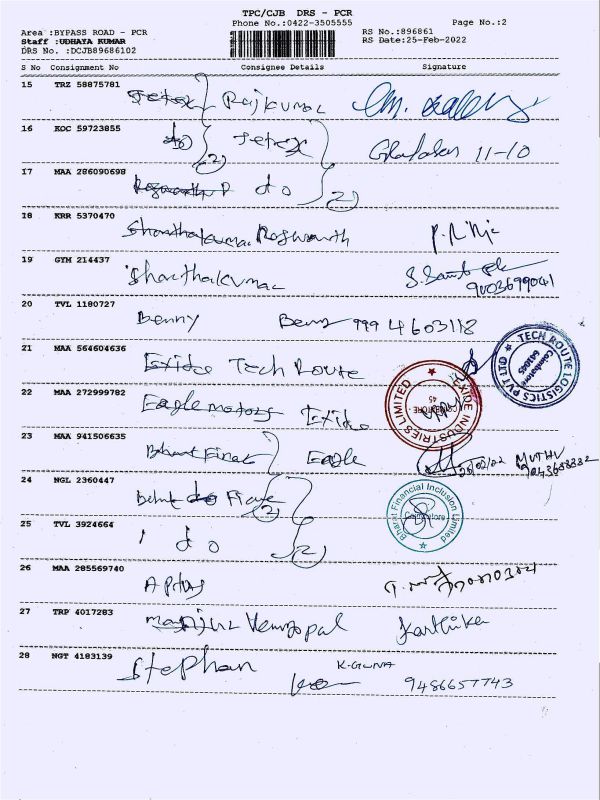 TPC/CJB DRS - PCR
Phone No.:0422-3505555
Page No.:2
Area :BYPASS ROAD - PCR
RS No.:896861
Staff :UDHAYA KUMAR
RS Date:25-Feb-2022
DRS No. :DCJB89686102
S No Consignment No Consignee Details Signature
15 TRZ 58875781
Rajkumar
16 KOC 59723855
do Tetox
(2) 11-10
17 MAA 286090698
do (2)
18 KRR 5370470
Sharathakumar Rogwanth
19 GYM 214437
Sharathakumar
9003699041
20 TVL 1180727
Benny Benny 999 4603118
21 MAA 564604636
Exide Tech Route
TECH ROUTE LOGISTICS PVT LTD
Coimbatore
641045
22 MAA 272999782
Eagle motors Exide
EXIDE INDUSTRIES LIMITED
COIMBATORE -
45
23 MAA 941506635
Eagle
25/02/22 MUTHU
24 NGL 2360447
(2)
Bharat Financial Inclusion Limited
Coimbatore
25 TVL 3924664
do (2)
26 MAA 285569740
27 TRP 4017283
Venugopal Karthika
28 NGT 4183139
Stephan K-GUNA
9486657743